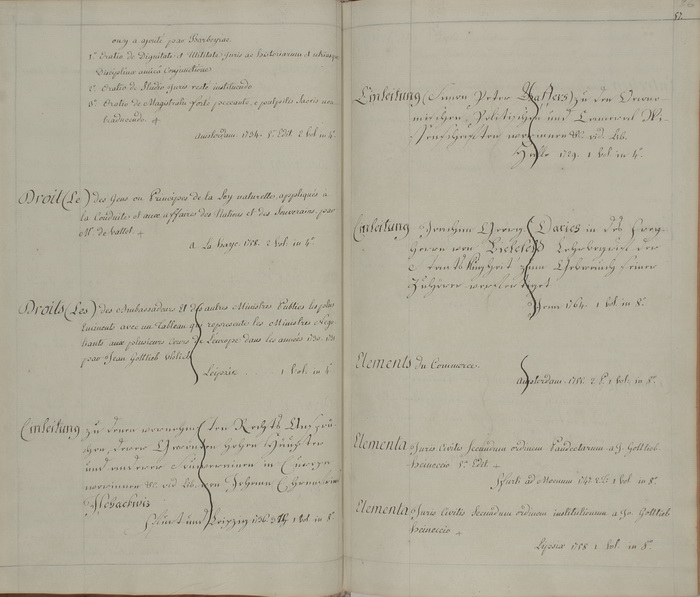 on y a ajouté par Barbeyrac.
1º Oratio de Dignitate et Utilitate Juris ac Historiarum et utriusque
Disciplinæ amica Conjunctione
2º Oratio de Studio Juris recte instituendo
3º Oratio de Magistratu forte peccante, e pulpitis Sacris non
traducendo.
Amsterdam. 1734. 5º Edit. 2 Vol. in 4º.
Droit (Le) des Gens ou Principes de la Loy naturelle, appliqués à
la Conduite et aux affaires des Nations et des Souverains, par
Mr. de Vattel.
a La haye. 1758. 2 Vol. in 4º.
Droits (Les) des Ambassadeurs et d'autres Ministres Publics les plus
Eminents avec un Tableau qui represente les Ministres
aux plusieurs Cours de l'Europe dans les années 1730. 1731
par Jean Gottlieb Uhlich
Leipsic. 1 Vol. in 4º
Einleitung zu denen Rechts
hohen Häupter
und anderer in Europa
worinnen von Johann Ehrenfried
Zschackwiz
und Leipzig 1 Vol. in 8º.
57.
Einleitung (Simon Peter Gassers) zu den
Politischen und Cameral
worinnen
Halle 1729. 1 Vol. in 4º.
Einleitung Joachim Georg Daries in des
Herrn von Bielefeld Lehrbegriff der
Staats Klugheit zum Gebrauch seiner
Zuhörer
Jena 1764. 1 Vol. in 8º.
Elements du Commerce.
Amsterdam. 1755. 2 P. 1 Vol. in 8º.
Elementa Juris Civilis Secundum ordinem Pandectarum a Jo. Gottlieb
Heineccio 5º Edit
ad Moenum 1747. 1 Vol. in 8º.
Elementa Juris Civilis Secundum ordinem institutionum a Jo. Gottlieb
Heineccio
Lipsiæ 1758 1 Vol. in 8º.